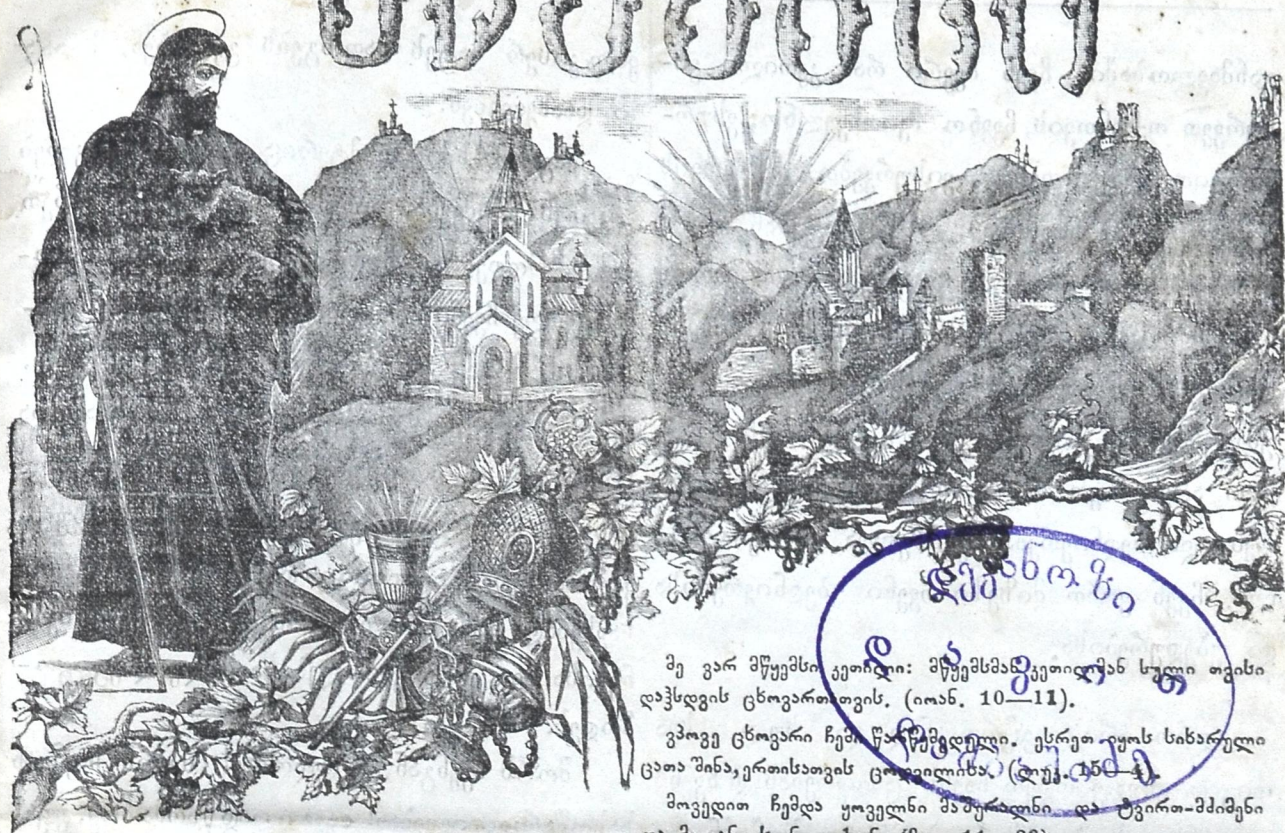 დეკანოზი
დავით
მე ვარ მწყემსი კეთილი: მწყემსმან კეთილმან სული თვისი
დაჰსდგის ცხოვართათვის. (იოან. 10—11).
ვპოვე ცხოვარი ჩემი წარწყმედული. ესრეთ იყოს სიხარული
ცათა შინა, ერთისათვის ცოდვილისა. (ლუკ. 15—4).
მოვედით ჩემდა ყოველნი მაშვრალნი და ტვირთ-მძიმენი